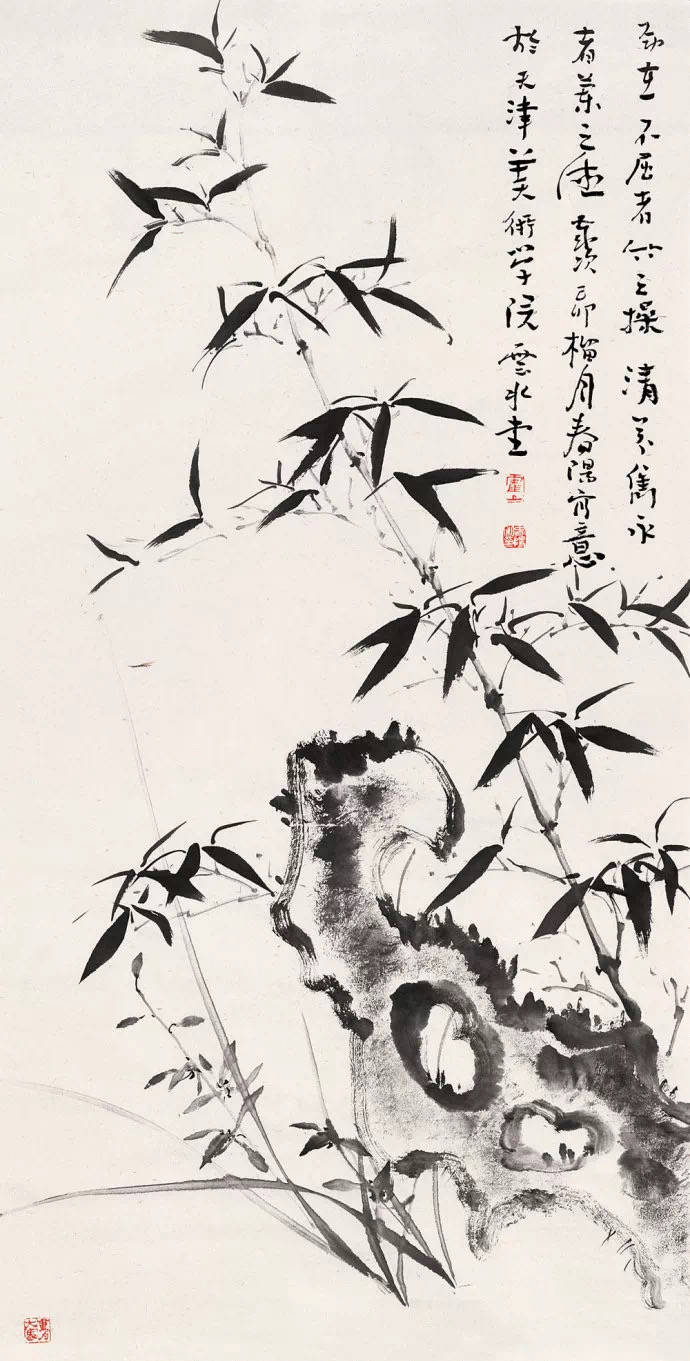 勁直不屈者竹之操 清芬雋永
者蘭之德 歲次己卯榴月春陽寫意
於天津美術學院雲水堂